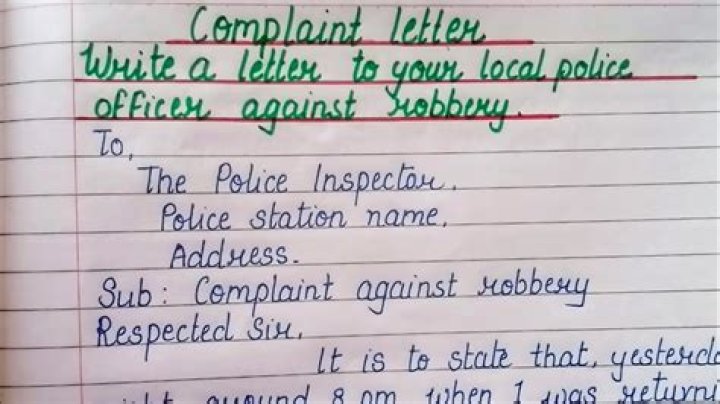 Complaint letter
Write a letter to your local police
officer against robbery.
To,
The Police Inspector.
Police station name,
Address.
Sub : Complaint against robbery
Respected Sir,
It is to state that, yesterda
around 8 pm when I was returni